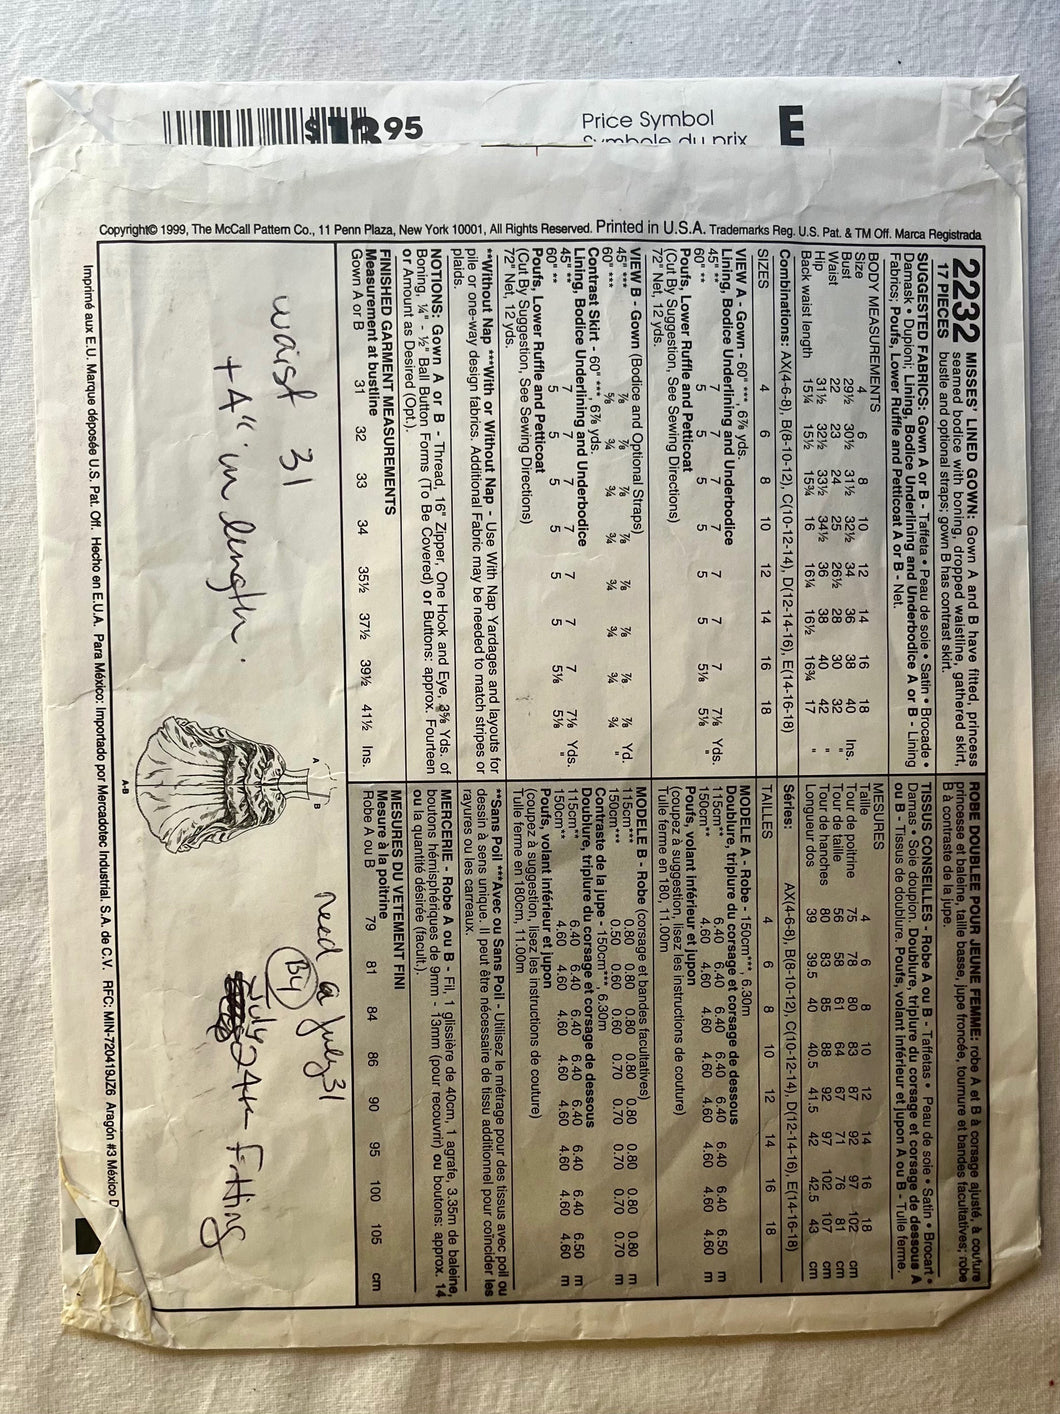 $12.95
Price Symbol
Symbole du prix
E
Copyright© 1999, The McCall Pattern Co., 11 Penn Plaza, New York 10001, All Rights Reserved. Printed in U.S.A. Trademarks Reg. U.S. Pat. & TM Off. Marca Registrada
2232 MISSES' LINED GOWN: Gown A and B have fitted, princess
seamed bodice with boning, dropped waistline, gathered skirt,
17 PIECES bustle and optional straps; gown B has contrast skirt.
SUGGESTED FABRICS: Gown A or B - Taffeta • Peau de soie • Satin • Brocade •
Damask • Dupioni; Lining, Bodice Underlining and Underbodice A or B - Lining
Fabrics; Poufs, Lower Ruffle and Petticoat A or B - Net.
BODY MEASUREMENTS
Size 4 6 8 10 12 14 16 18
Bust 29½ 30½ 31½ 32½ 34 36 38 40 Ins.
Waist 22 23 24 25 26½ 28 30 32 "
Hip 31½ 32½ 33½ 34½ 36 38 40 42 "
Back waist length 15¼ 15½ 15¾ 16 16¼ 16½ 16¾ 17 "
Combinations: AX(4-6-8), B(8-10-12), C(10-12-14), D(12-14-16), E(14-16-18)
SIZES 4 6 8 10 12 14 16 18
VIEW A - Gown - 60" ***, 6⅞ yds.
Lining, Bodice Underlining and Underbodice
45" ** 7 7 7 7 7 7 7 7⅛ Yds.
60" ** 5 5 5 5 5 5 5⅛ 5⅛ "
Poufs, Lower Ruffle and Petticoat
(Cut By Suggestion, See Sewing Directions)
72" Net, 12 yds.
VIEW B - Gown (Bodice and Optional Straps)
45" *** ⅞ ⅞ ⅞ ⅞ ⅞ ⅞ ⅞ ⅞ Yd.
60" *** ⅝ ¾ ¾ ¾ ¾ ¾ ¾ ¾ "
Contrast Skirt - 60" ***, 6⅞ yds.
Lining, Bodice Underlining and Underbodice
45" ** 7 7 7 7 7 7 7 7⅛ Yds.
60" ** 5 5 5 5 5 5 5⅛ 5⅛ "
Poufs, Lower Ruffle and Petticoat
(Cut By Suggestion, See Sewing Directions)
72" Net, 12 yds.
**Without Nap ***With or Without Nap - Use With Nap Yardages and layouts for
pile or one-way design fabrics. Additional Fabric may be needed to match stripes or
plaids.
NOTIONS: Gown A or B - Thread, 16" Zipper, One Hook and Eye, 3⅝ Yds. of
Boning, ¼" - ½" Ball Button Forms (To Be Covered) or Buttons: approx. Fourteen
or Amount as Desired (Opt.).
FINISHED GARMENT MEASUREMENTS
Measurement at bustline
Gown A or B 31 32 33 34 35½ 37½ 39½ 41½ Ins.
ROBE DOUBLEE POUR JEUNE FEMME: robe A et B à corsage ajusté, à couture
princesse et baleine, taille basse, jupe froncée, tournure et bandes facultatives; robe
B à contraste de la jupe.
TISSUS CONSEILLES - Robe A ou B - Taffetas • Peau de soie • Satin • Brocart •
Damas • Soie doupion. Doublure, triplure du corsage et corsage de dessous A
ou B - Tissus de doublure. Poufs, volant inférieur et jupon A ou B - Tulle ferme.
MESURES
Taille 4 6 8 10 12 14 16 18
Tour de poitrine 75 78 80 83 87 92 97 102 cm
Tour de taille 56 58 61 64 67 71 76 81 cm
Tour de hanches 80 83 85 88 92 97 102 107 cm
Longueur dos 39 39.5 40 40.5 41.5 42 42.5 43 cm
Séries: AX(4-6-8), B(8-10-12), C(10-12-14), D(12-14-16), E(14-16-18)
TAILLES 4 6 8 10 12 14 16 18
MODELE A - Robe - 150cm***, 6.30m
Doublure, triplure du corsage et corsage de dessous
115cm** 6.40 6.40 6.40 6.40 6.40 6.40 6.40 6.50 m
150cm** 4.60 4.60 4.60 4.60 4.60 4.60 4.60 4.60 m
Poufs, volant inférieur et jupon
(coupez à suggestion, lisez les instructions de couture)
Tulle ferme en 180, 11.00m
MODELE B - Robe (corsage et bandes facultatives)
115cm*** 0.80 0.80 0.80 0.80 0.80 0.80 0.80 0.80 m
150cm*** 0.50 0.60 0.60 0.70 0.70 0.70 0.70 0.70 m
Contraste de la jupe - 150cm***, 6.30m
Doublure, triplure du corsage et corsage de dessous
115cm** 6.40 6.40 6.40 6.40 6.40 6.40 6.40 6.50 m
150cm** 4.60 4.60 4.60 4.60 4.60 4.60 4.60 4.60 m
Poufs, volant inférieur et jupon
(coupez à suggestion, lisez les instructions de couture)
Tulle ferme en 180cm, 11.00m
**Sans Poil ***Avec ou Sans Poil - Utilisez le métrage pour des tissus avec poil ou
dessin à sens unique. Il peut être nécessaire de tissu additionnel pour coïncider les
rayures ou les carreaux.
MERCERIE - Robe A ou B - Fil, 1 glissière de 40cm, 1 agrafe, 3.35m de baleine,
boutons hémisphériques de 9mm - 13mm (pour recouvrir) ou boutons: approx. 14
ou la quantité désirée (facult.).
MESURES DU VETEMENT FINI
Mesure à la poitrine
Robe A ou B 79 81 84 86 90 95 100 105 cm
waist 31
+4" in length.
A
B
A-B
need a July 31
By
July 24th Fitting
Imprimé aux E.U. Marque déposée U.S. Pat. Off. Hecho en E.U.A. Para México: Importado por Mercadotec Industrial. S.A. de C.V. RFC: MIN-720419JZ6 Aragón #3 México D